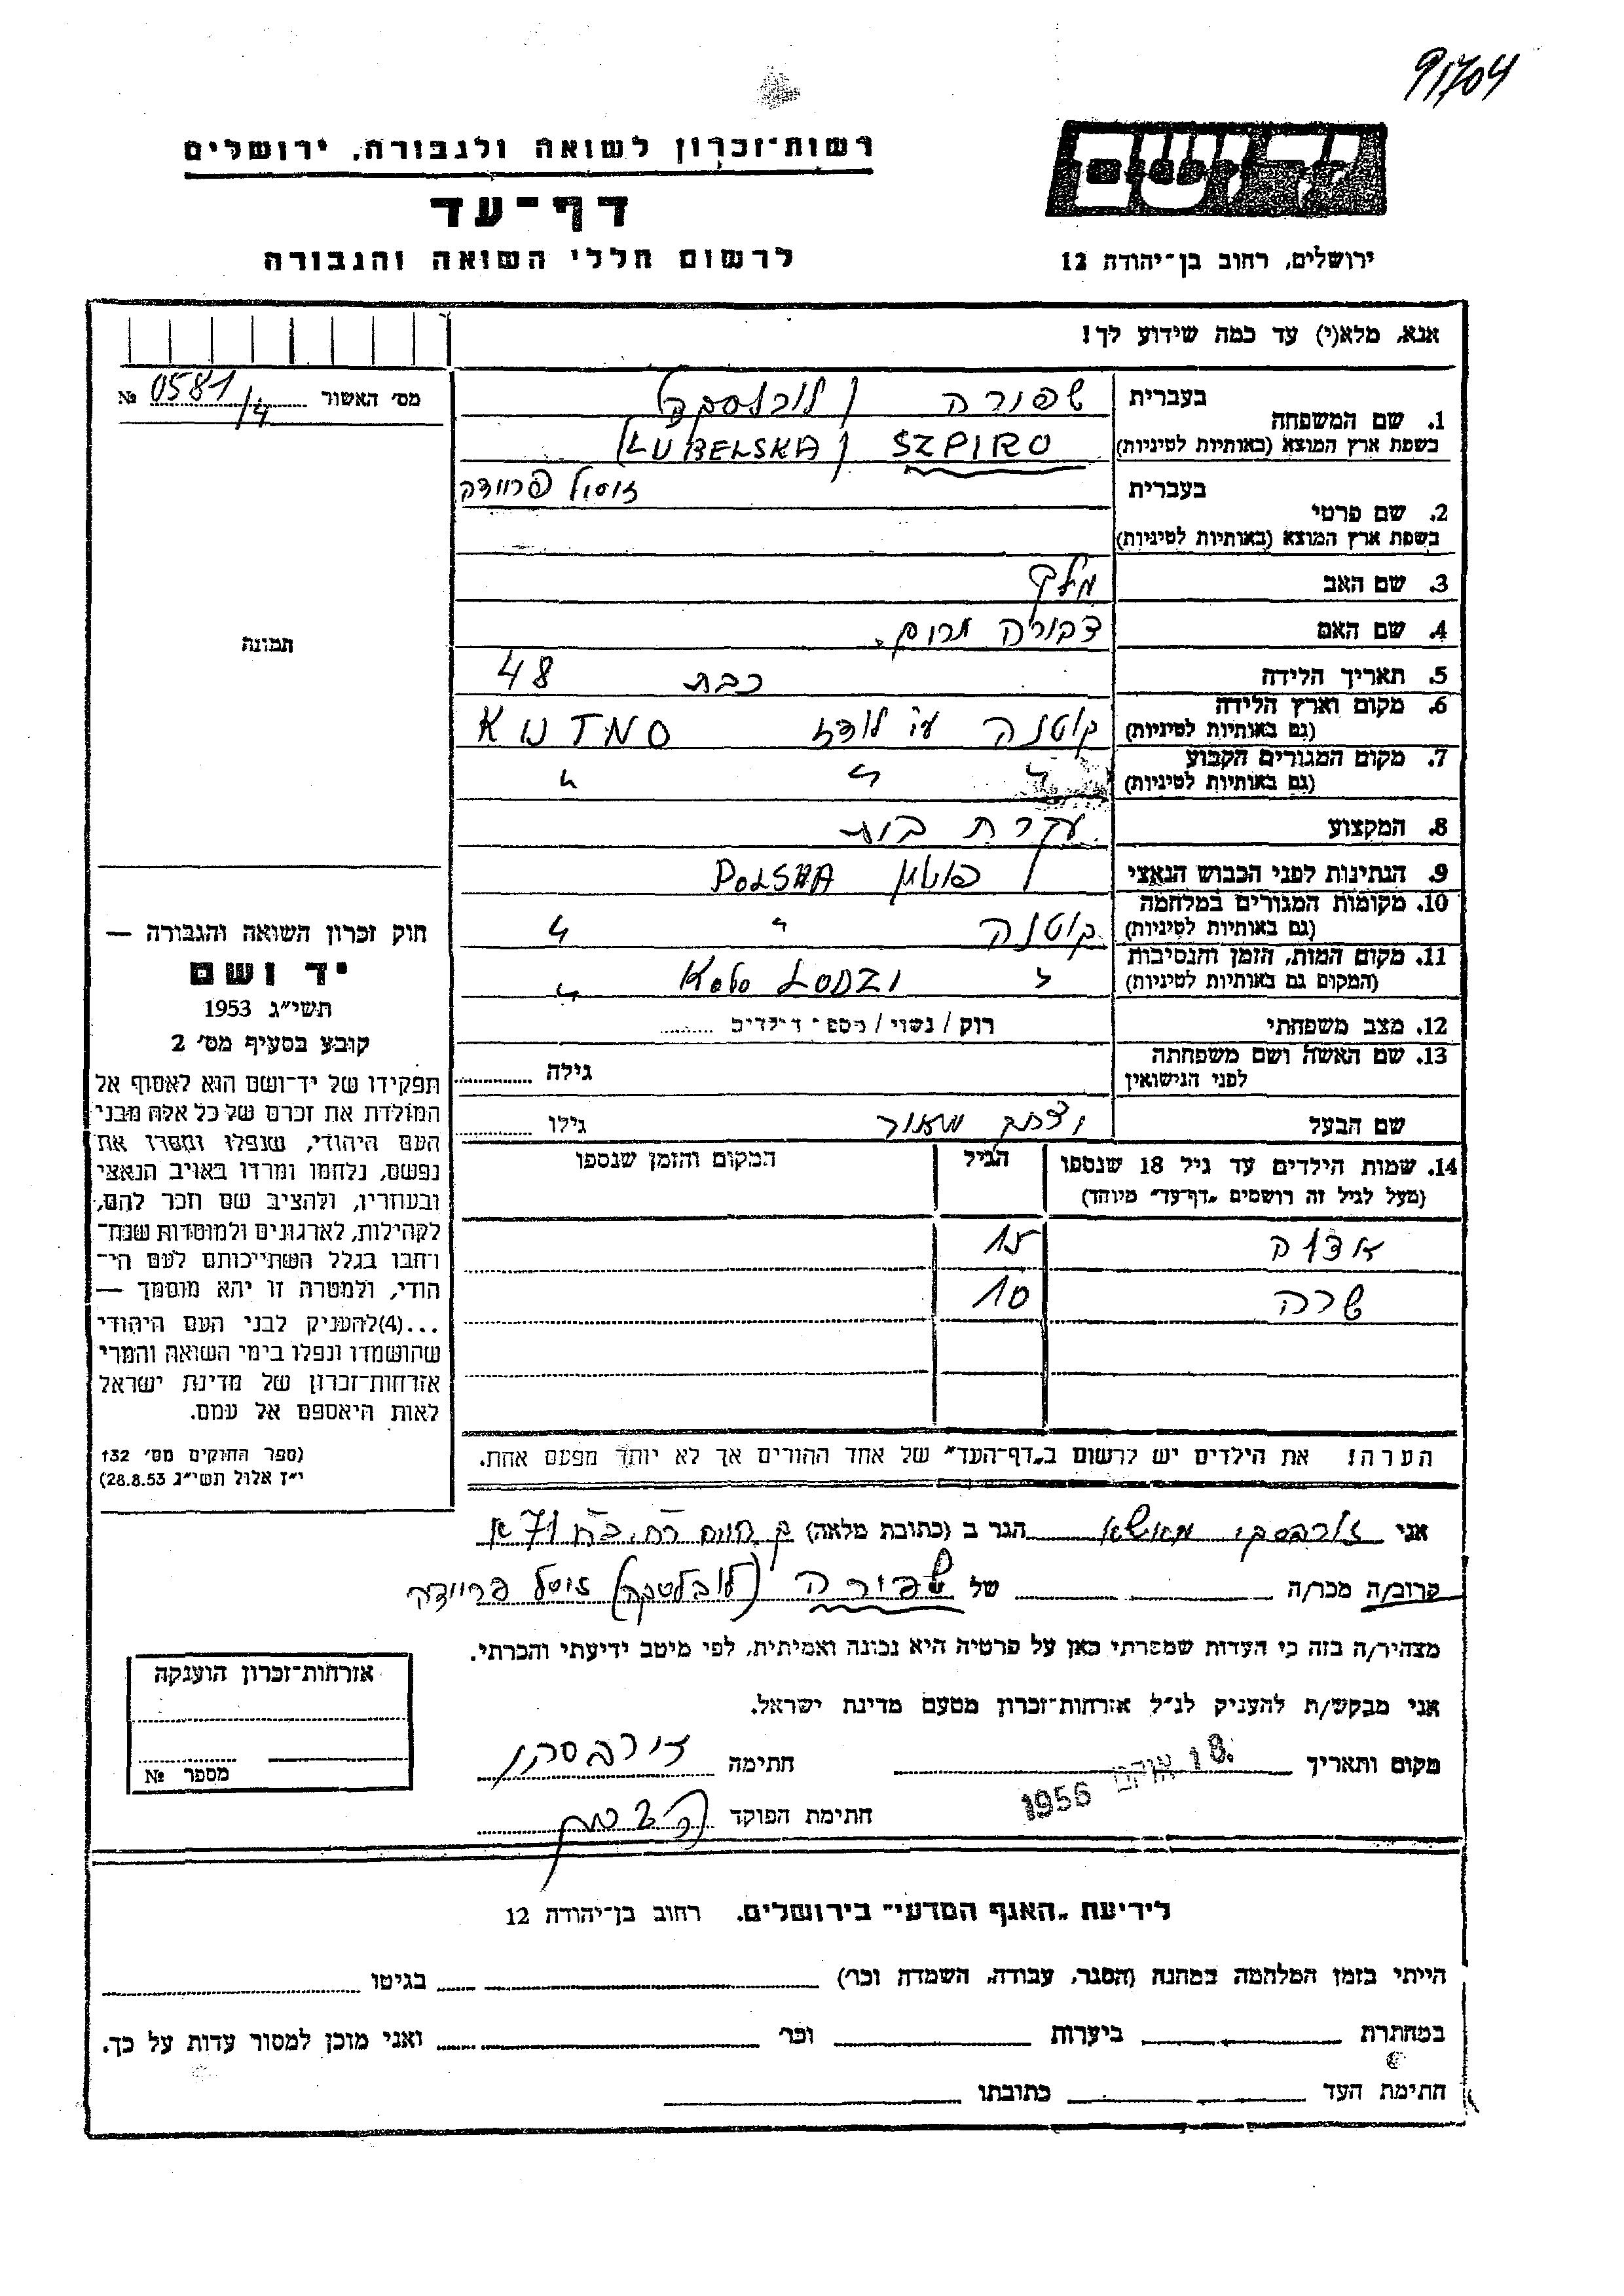 91704
רשות־זכרון לשואה ולגבורה, ירושלים
דף־עד
לרשום חללי השואה והגבורה
ירושלים, רחוב בן־יהודה 12
אנא, מלא(י) עד כמה שידוע לך!
מס׳ האשור 0581/4 №
1. שם המשפחה
בעברית שפורה (לובלסקה)
בשפת ארץ המוצא (באותיות לטיניות) SZPIRO (LUBELSKA)
2. שם פרטי
בעברית זיסל פריידה
בשפת ארץ המוצא (באותיות לטיניות)
3. שם האב מלך
4. שם האם דבורה
5. תאריך הלידה כבת 48
6. מקום וארץ הלידה
(גם באותיות לטיניות) קוטנה ע״י לודז KUTNO
7. מקום המגורים הקבוע
(גם באותיות לטיניות) " " "
8. המקצוע עקרת בית
9. הנתינות לפני הכבוש הנאצי POLSKA
10. מקומות המגורים במלחמה
(גם באותיות לטיניות) קוטנה " "
11. מקום המות, הזמן והנסיבות
(המקום גם באותיות לטיניות) " Koło ŁODZI "
12. מצב משפחתי רוק / נשוי / מספר ילדים
13. שם האשה ושם משפחתה
לפני הנישואין גילה
שם הבעל גילו
14. שמות הילדים עד גיל 18 שנספו
(מעל לגיל זה רושמים „דף־עד״ מיוחד)
הגיל
המקום והזמן שנספו
15
שרה 10
הערה! את הילדים יש לרשום ב„דף־העד״ של אחד ההורים אך לא יותר מפעם אחת.
תמונה
חוק זכרון השואה והגבורה —
יד ושם
תשי״ג 1953
קובע בסעיף מס׳ 2
תפקידו של יד־ושם הוא לאסוף אל
המולדת את זכרם של כל אלה מבני
העם היהודי, שנפלו ומסרו את
נפשם, נלחמו ומרדו באויב הנאצי
ובעוזריו, ולהציב שם וזכר להם,
לקהילות, לארגונים ולמוסדות שנח־
רחבו בגלל השתייכותם לעם הי־
הודי, ולמטרה זו יהא מוסמך —
...(4)להעניק לבני העם היהודי
שהושמדו ונפלו בימי השואה והמרי
אזרחות־זכרון של מדינת ישראל
לאות היאספם אל עמם.
(ספר החוקים מס׳ 132
י״ז אלול תשי״ג 28.8.53)
אני הגר ב (כתובת מלאה)
קרוב/ה מכר/ה של שפירה (לובלסקה) זיסל פריידה
מצהיר/ה בזה כי העדות שמסרתי כאן על פרטיה היא נכונה ואמיתית, לפי מיטב ידיעתי והכרתי.
אני מבקש/ת להעניק לנ״ל אזרחות־זכרון מטעם מדינת ישראל.
מקום ותאריך 18. 1956 חתימה
חתימת הפוקד
אזרחות־זכרון הוענקה
מספר №
לידיעת „האגף המדעי״ בירושלים. רחוב בן־יהודה 12
הייתי בזמן המלחמה במחנה (הסגר, עבודה, השמדה וכר׳) בגיטו
במחתרת ביערות וכר׳ ואני מוכן למסור עדות על כך.
חתימת העד כתובתו